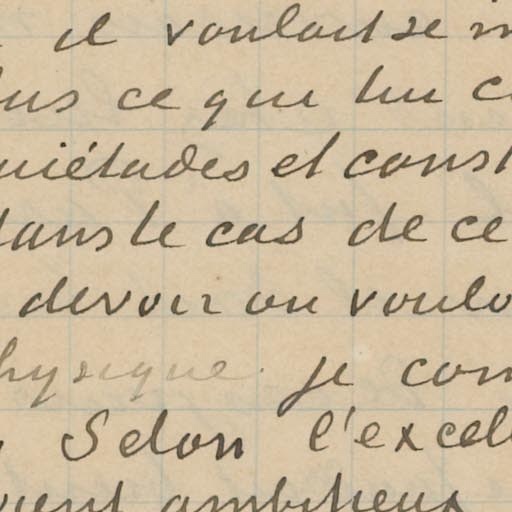 il voulait se m
lus ce que lui c
uiétudes et const
dans le cas de ce
devoir ou voulo
hysique je com
Selon l'excell
vient ambitieux